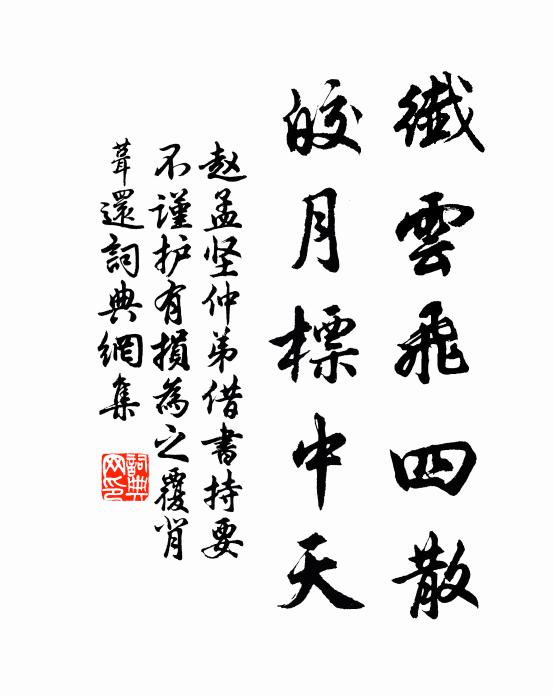 纖雲飛四散
皎月標中天
赵孟坚仲弟借書持要
不謹护有損為之覆肖
葺還詞典網集
詞典
网印